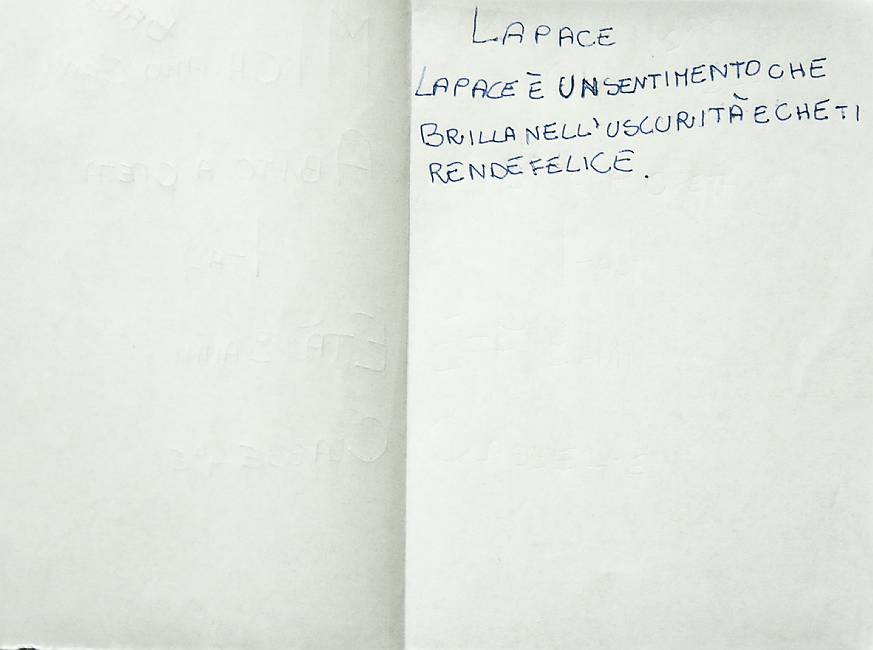 LA PACE
LA PACE È UN SENTIMENTO CHE
BRILLA NELL'USCURITÀ E CHE TI
RENDE FELICE.